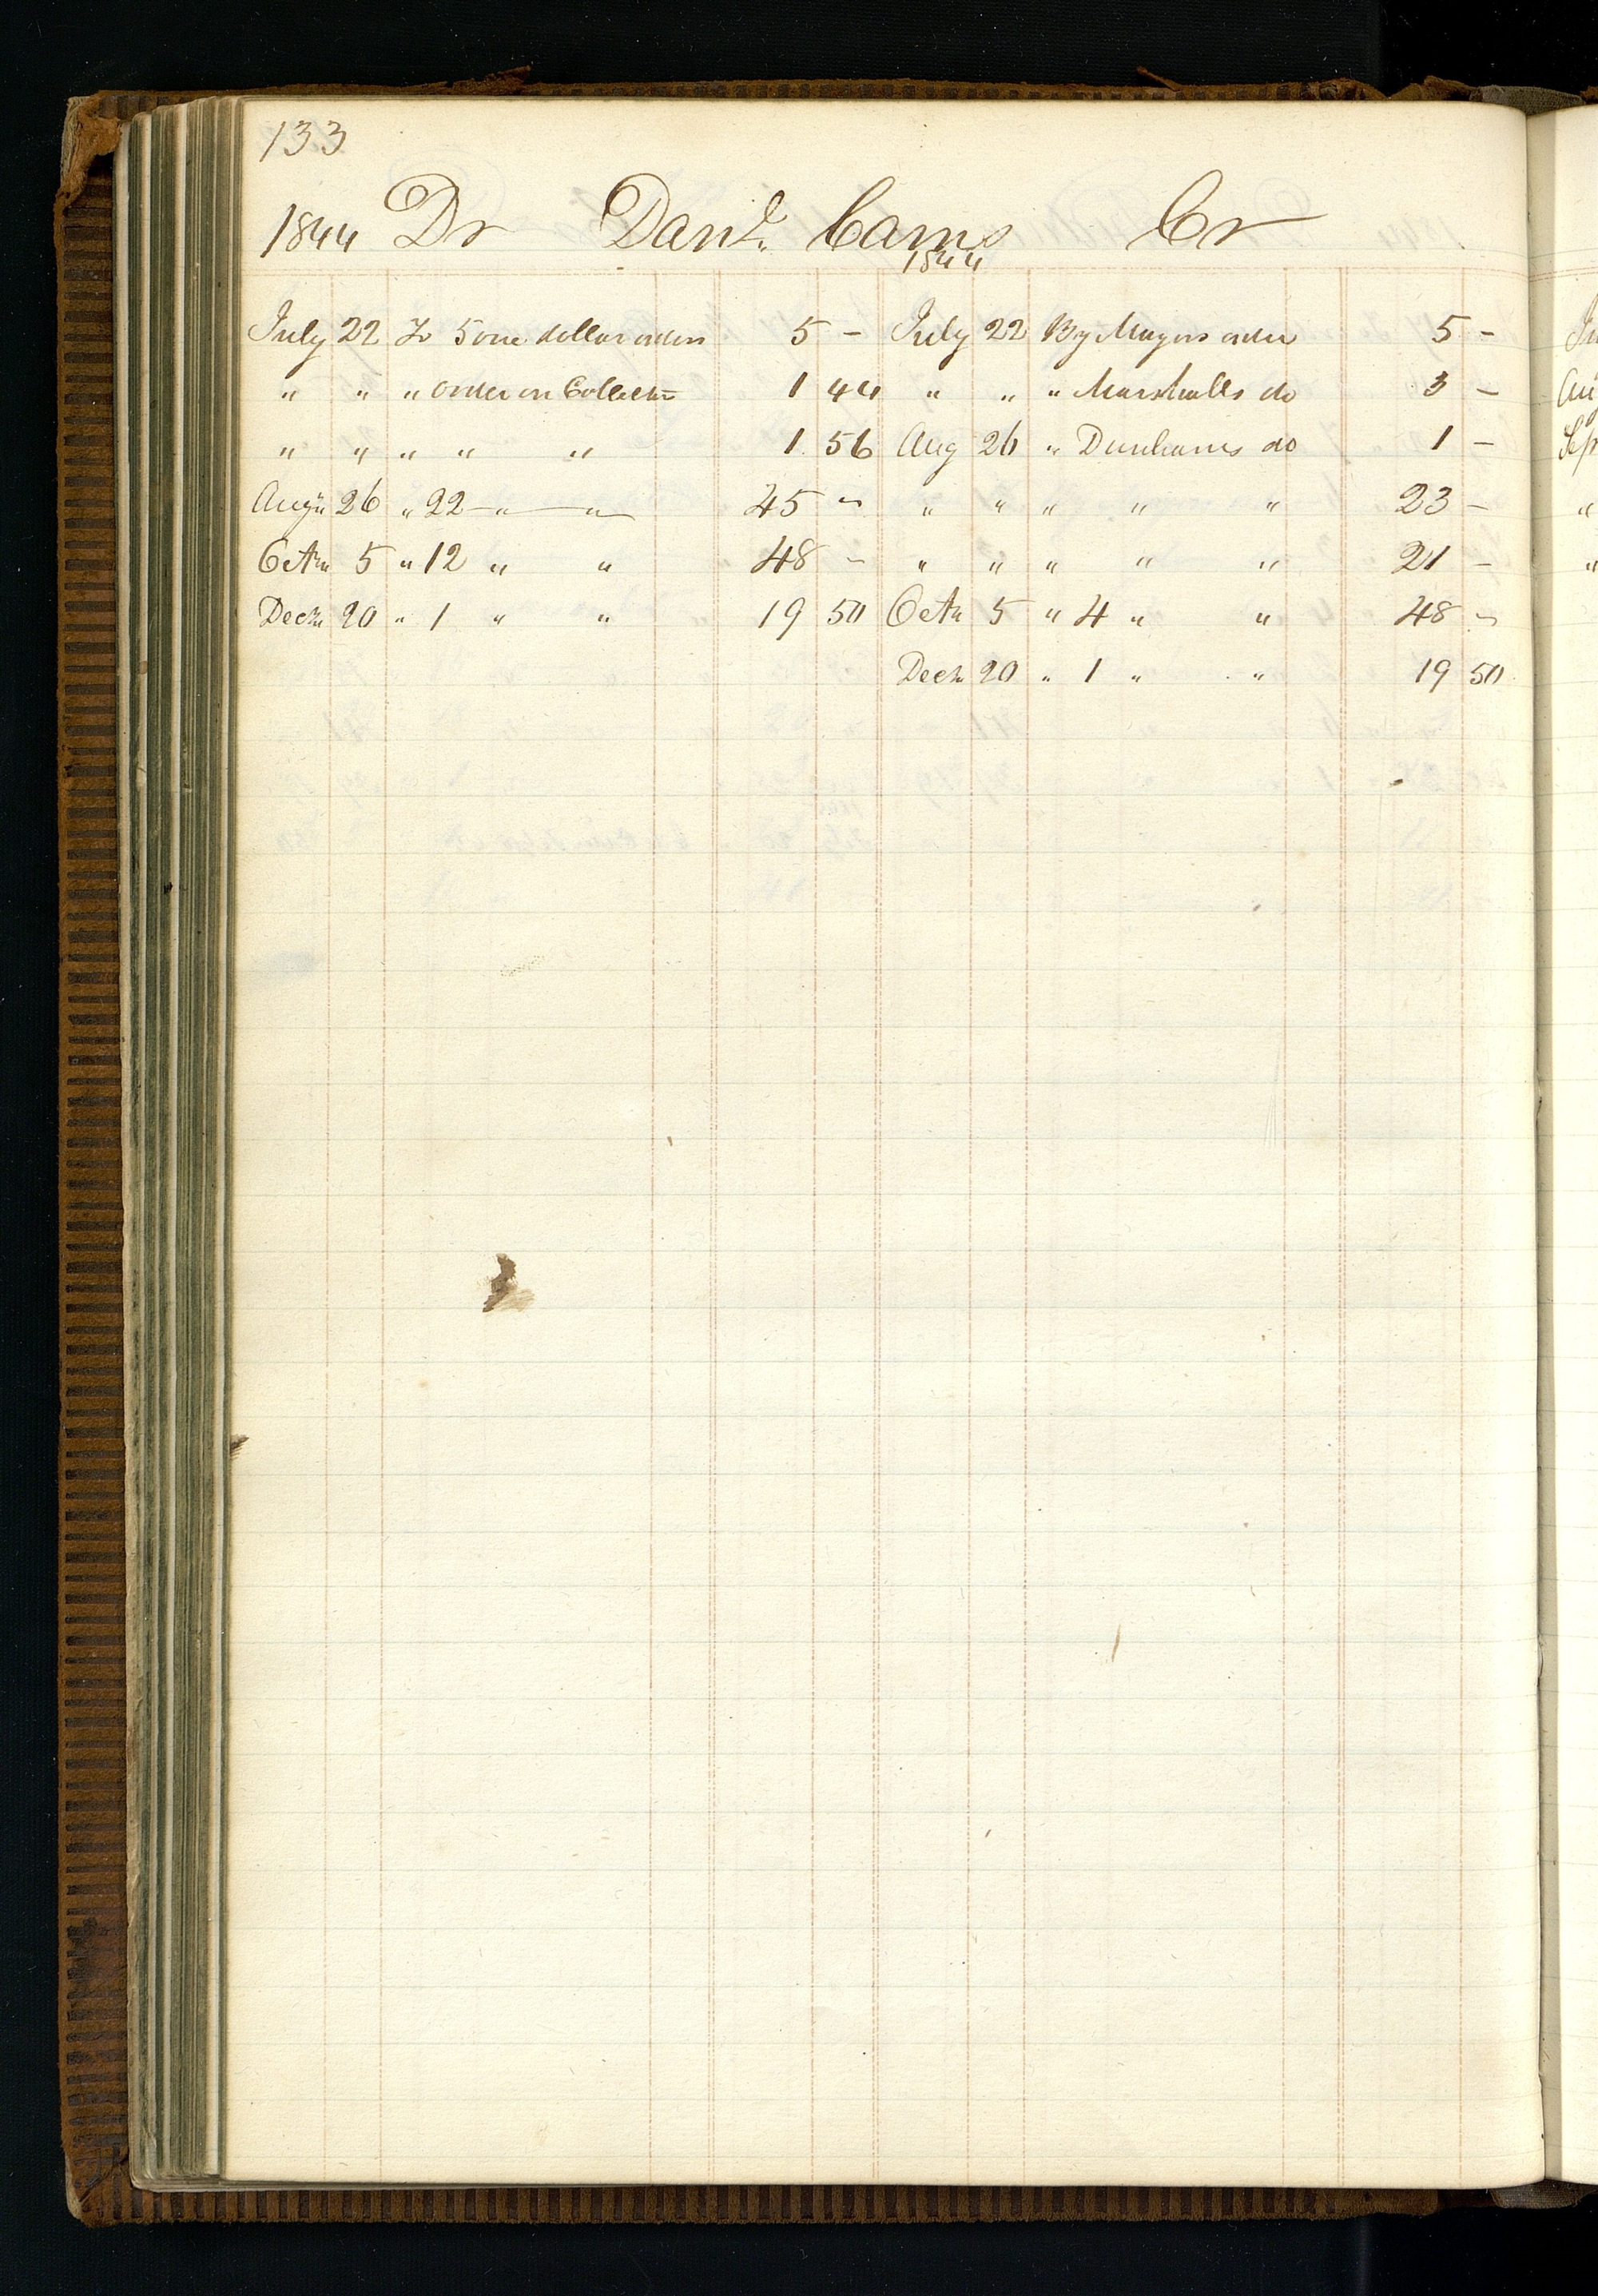 133
1844 Dr Danl. Cams Cr
1844
July 22 To 5 one dollar orders 5 - July 22 By Mayors order 5 -
" " " order on Collector 1 44 " " " Marshalls do 3 -
" " " " " 1 56 Aug 26 " Dunhams do 1 -
Augu 26 " 22 " " 45 - " " " " " 23 -
Octr 5 " 12 " " 48 - " " " " " 21 -
Decr 20 " 1 " " 19 50 Octr 5 " 4 " " 48 -
Decr 20 " 1 " " 19 50